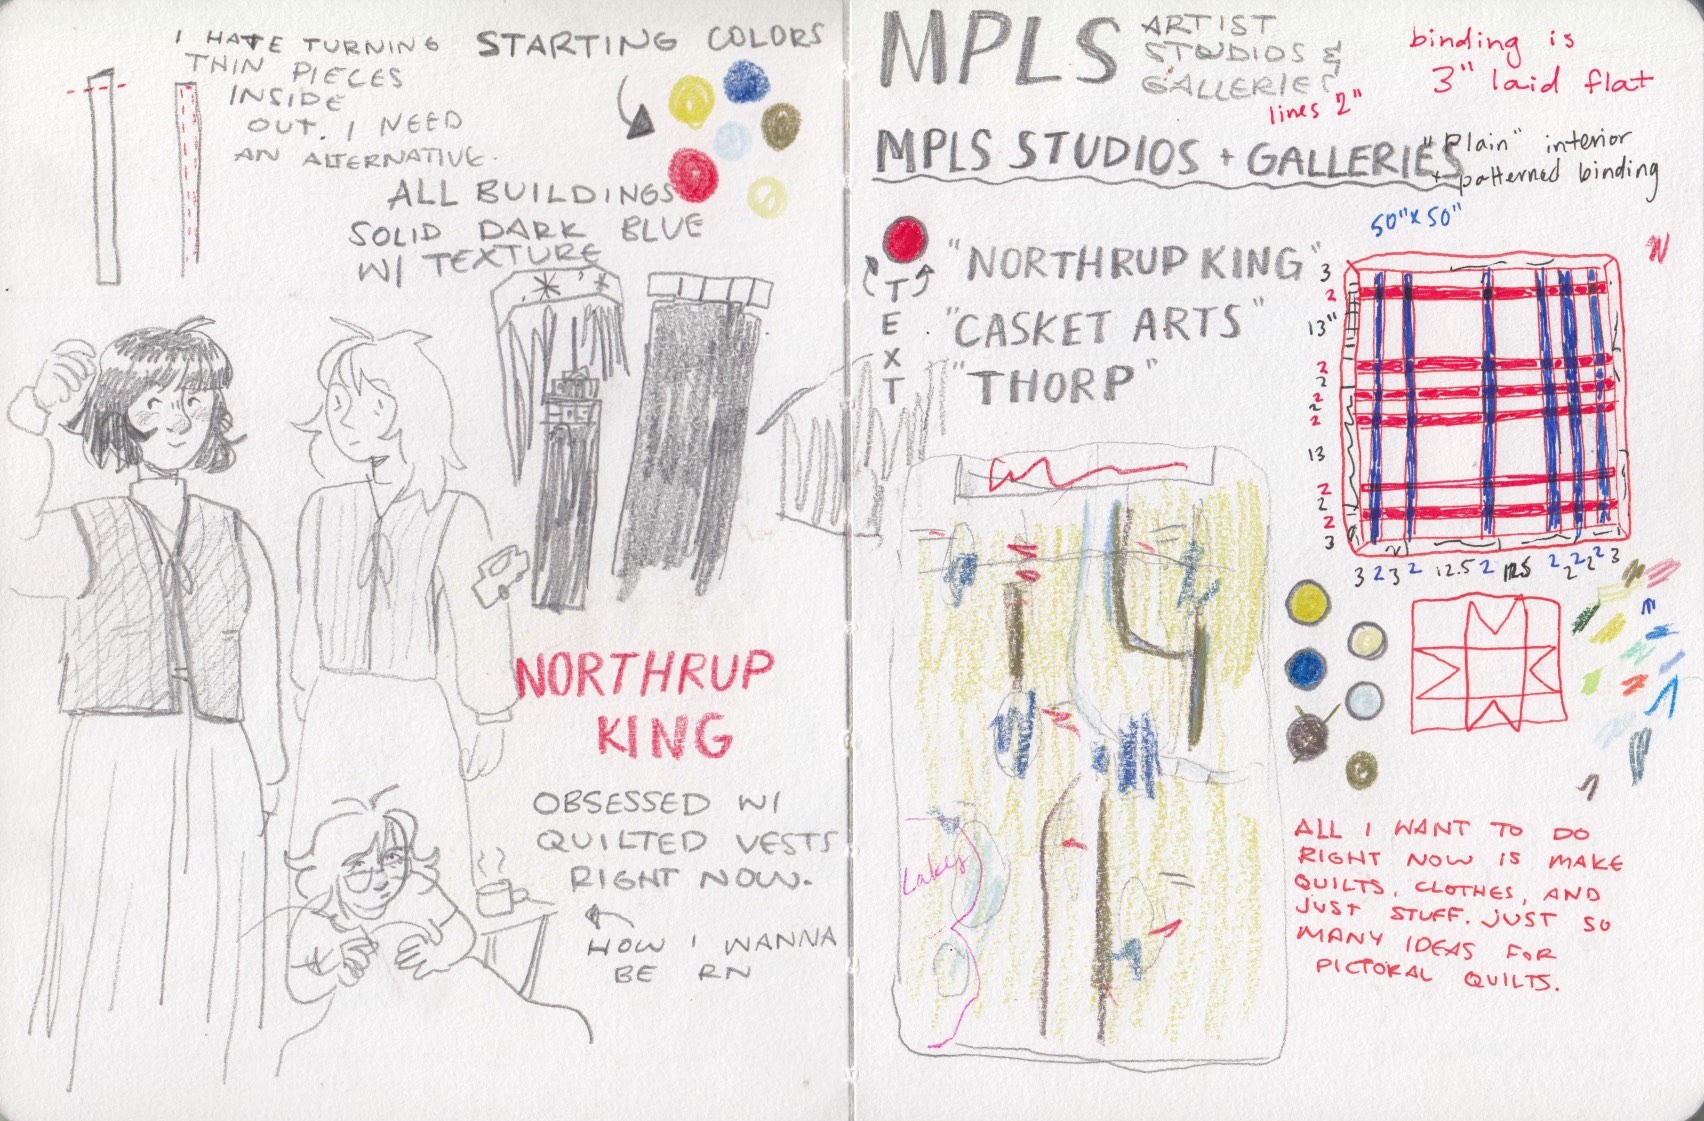 I HATE TURNING
THIN PIECES
INSIDE
OUT. I NEED
AN ALTERNATIVE.
STARTING COLORS
ALL BUILDINGS
SOLID DARK BLUE
W/ TEXTURE
NORTHRUP
KING
OBSESSED W/
QUILTED VESTS
RIGHT NOW.
HOW I WANNA
BE RN
MPLS
ARTIST
STUDIOS &
GALLERIES
lines 2"
binding is
3" laid flat
MPLS STUDIOS + GALLERIES
"Plain" interior
+ patterned binding
50" x 50"
TEXT
"NORTHRUP KING"
"CASKET ARTS"
"THORP"
3
2
13"
2
2
2
2
2
13
2
2
2
3
3 2 3 2 12.5 2 12.5 2 2 2 2 2 3
Lakes
ALL I WANT TO DO
RIGHT NOW IS MAKE
QUILTS, CLOTHES, AND
JUST STUFF. JUST SO
MANY IDEAS FOR
PICTORAL QUILTS.